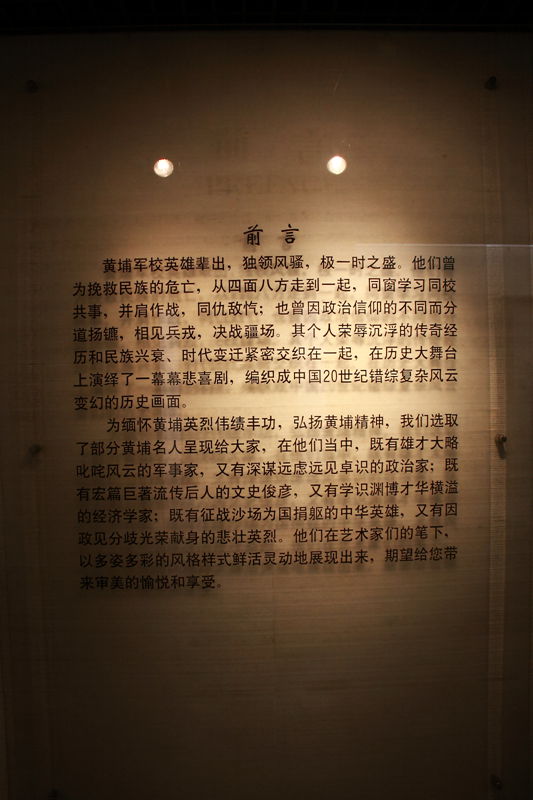 前言
黄埔军校英雄辈出，独领风骚，极一时之盛。他们曾
为挽救民族的危亡，从四面八方走到一起，同窗学习同校
共事，并肩作战，同仇敌忾；也曾因政治信仰的不同而分
道扬镳，相见兵戎，决战疆场。其个人荣辱沉浮的传奇经
历和民族兴衰、时代变迁紧密交织在一起，在历史大舞台
上演绎了一幕幕悲喜剧，编织成中国20世纪错综复杂风云
变幻的历史画面。
为缅怀黄埔英烈伟绩丰功，弘扬黄埔精神，我们选取
了部分黄埔名人呈现给大家，在他们当中，既有雄才大略
叱咤风云的军事家，又有深谋远虑远见卓识的政治家；既
有宏篇巨著流传后人的文史俊彦，又有学识渊博才华横溢
的经济学家；既有征战沙场为国捐躯的中华英雄，又有因
政见分歧光荣献身的悲壮英烈。他们在艺术家们的笔下，
以多姿多彩的风格样式鲜活灵动地展现出来，期望给您带
来审美的愉悦和享受。